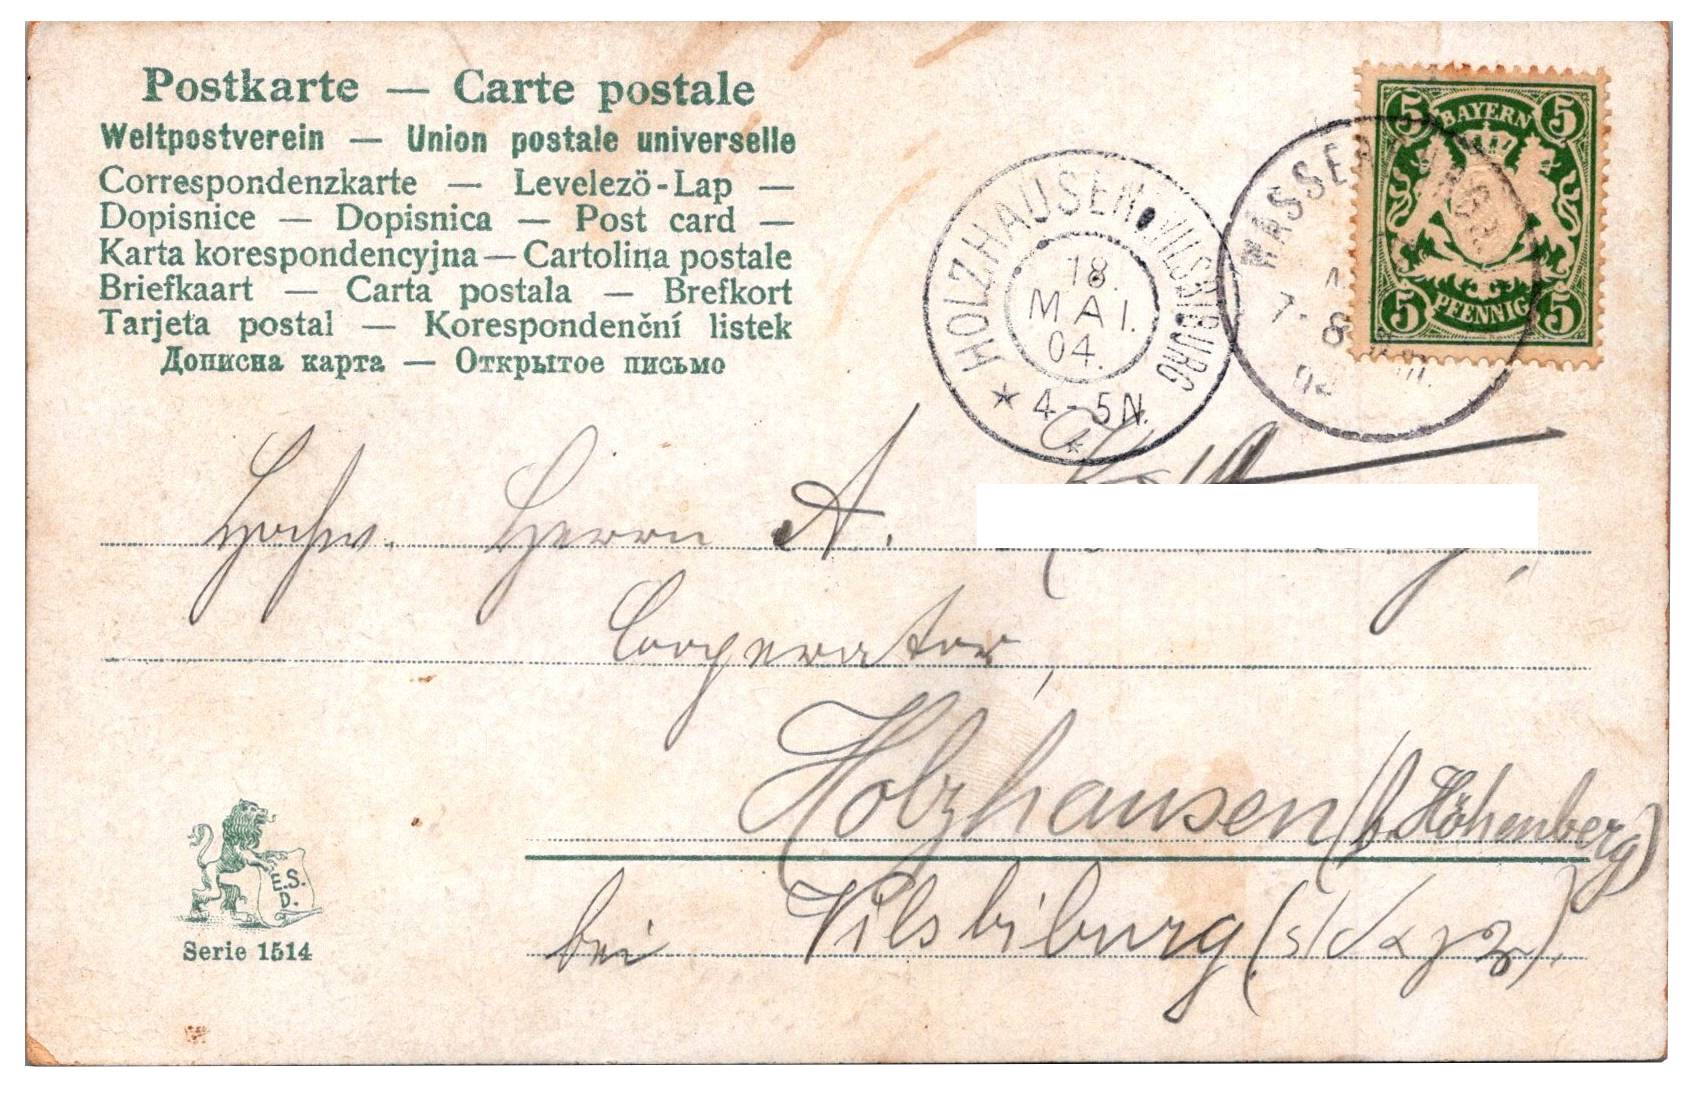 Postkarte — Carte postale
Weltpostverein — Union postale universelle
Correspondenzkarte — Levelezö-Lap —
Dopisnice — Dopisnica — Post card —
Karta korespondencyjna — Cartolina postale
Briefkaart — Carta postala — Brefkort
Tarjeta postal — Korespondenční listek
Дописна карта — Открытое письмо
HOLZHAUSEN VILSBIBURG
18.
MAI.
04.
4-5N.
WASSERBURG
7-8
04
5 BAYERN 5
5 PFENNIG 5
Hochw. Herrn A.
Cooperator,
Holzhausen (b. Höhenberg)
bei Vilsbiburg
E.S.
D.
Serie 1514